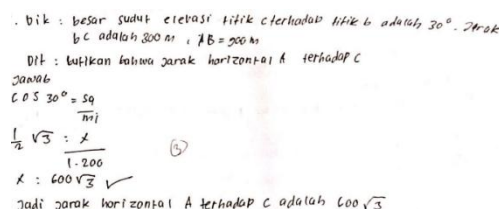 . bik : besar sudut elevasi titik c terhadap titik b adalah 30°. Jarak
bc adalah 300 m , AB = 900 m
Dit : buktikan bahwa jarak horizontal A terhadap C
jawab
cos 30° = sa
mi
1/2 √3 : x
1.200
③
x : 600√3 ✓
Jadi jarak horizontal A terhadap C adalah 600 √3